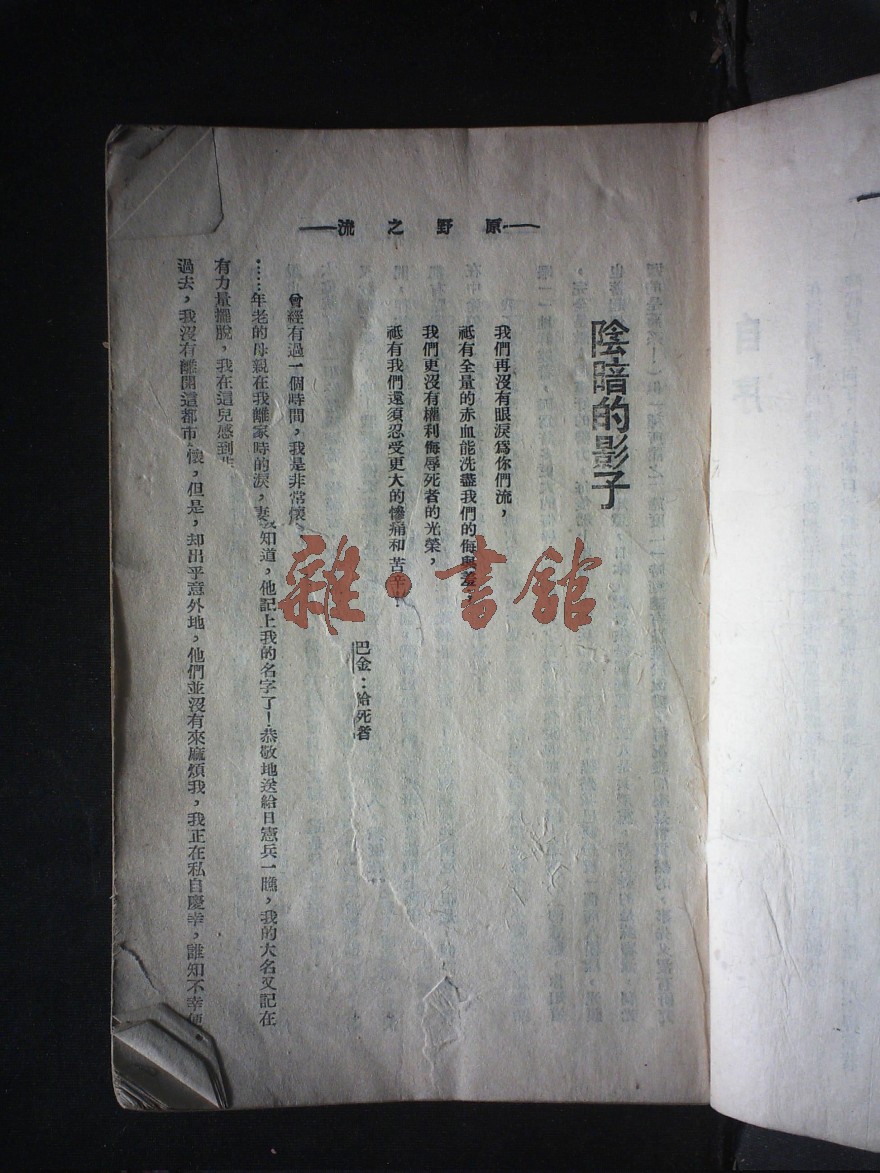 ——原野之流——
陰暗的影子
我們再沒有眼淚爲你們流,
祗有全量的赤血能洗盡我們的悔與羞,
我們更沒有權利侮辱死者的光榮,
祗有我們還須忍受更大的慘痛和苦辛!
巴金:給死者
曾經有過一個時間,我是非常懷
……年老的母親在我離家時的淚,妻知道,他記上我的名字了!恭敬地送給日憲兵一瞧,我的大名又記在
有力量擺脫,我在這兒感到
過去,我沒有離開這都市懷,但是,却出乎意外地,他們並沒有來麻煩我,我正在私自慶幸,誰知不幸便
雜·書館